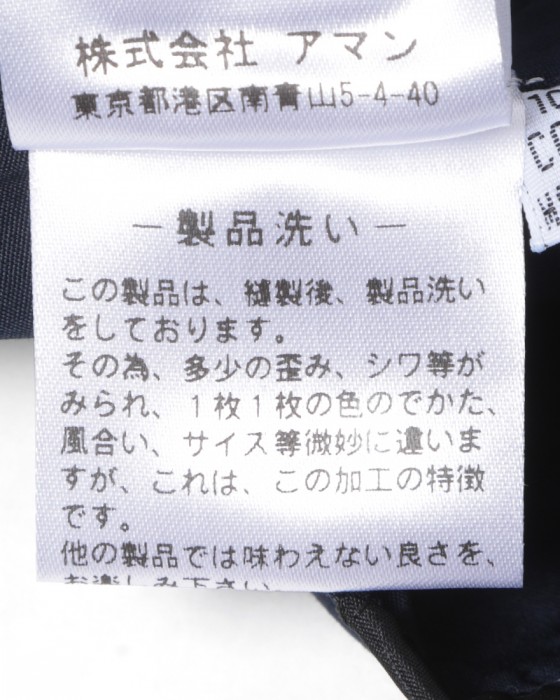 株式会社 アマン
東京都港区南青山5-4-40
－製品洗い－
この製品は、縫製後、製品洗い
をしております。
その為、多少の歪み、シワ等が
みられ、1枚1枚の色のでかた、
風合い、サイズ等微妙に違いま
すが、これは、この加工の特徴
です。
他の製品では味わえない良さを、
お楽しみ下さい。